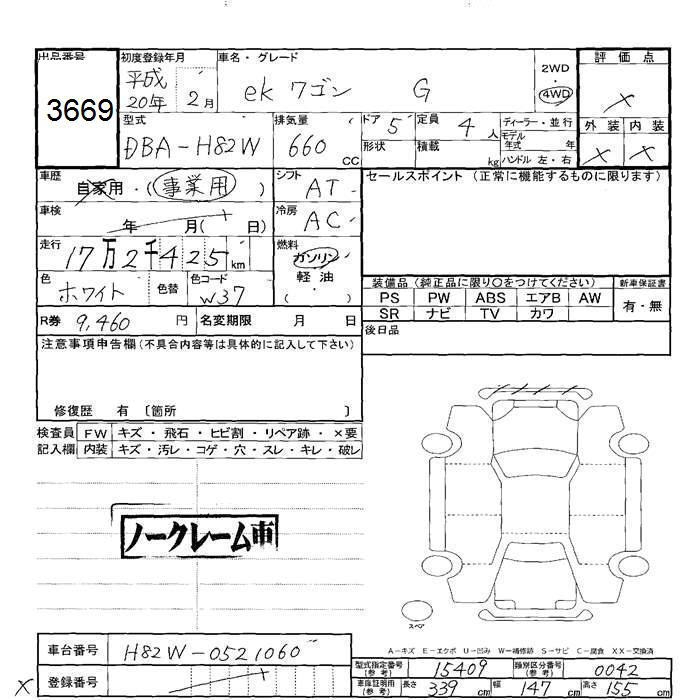 出品番号
3669
初度登録年月
平成
20年 2月
車名・グレード
ekワゴン G
2WD
・
4WD
評価点
×
外装 内装
× ×
型式
DBA-H82W
排気量
660
cc
ドア 5
形状
定員 4人
積載 kg
ディーラー・並行
モデル
年式 年
ハンドル 左・右
車歴
自家用・(事業用)
シフト
AT
車検
年 月( 日)
冷房
AC
走行
17万2千425km
燃料
ガソリン
軽油
( )
色
ホワイト
色替
色コード
W37
R券 9,460 円
名変期限 月 日
セールスポイント (正常に機能するものに限ります)
装備品 (純正品に限り○をつけてください)
新車保証書
PS PW ABS エアB AW
SR ナビ TV カワ
有・無
後日品
注意事項申告欄(不具合内容等は具体的に記入して下さい)
修復歴 有 〔箇所 〕
検査員 FW キズ・飛石・ヒビ割・リペア跡・×要
記入欄 内装 キズ・汚レ・コゲ・穴・スレ・キレ・破レ
ノークレーム車
スペア
A-キズ E-エクボ U-凹み W-補修跡 S-サビ C-腐食 XX-交換済
車台番号 H82W-0521060
× 登録番号
型式指定番号
(参考)
15409
類別区分番号
(参考)
0042
車庫証明用
(参考)
長さ 339cm 幅 147cm 高さ 155cm